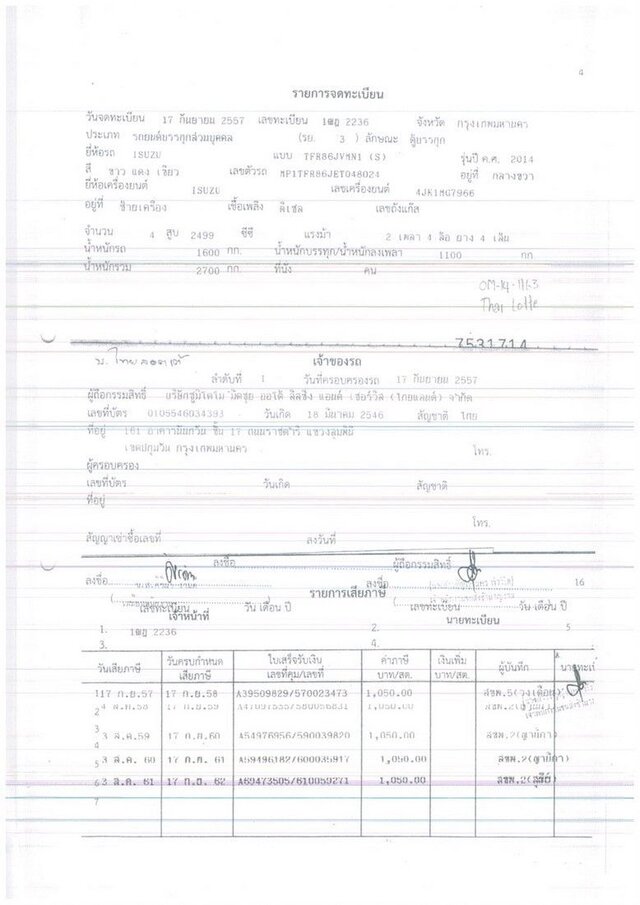 รายการจดทะเบียน
วันจดทะเบียน 17 กันยายน 2557 เลขทะเบียน 1ฒฎ 2236 จังหวัด กรุงเทพมหานคร
ประเภท รถยนต์บรรทุกส่วนบุคคล (รย. 3 ) ลักษณะ ตู้บรรทุก
ยี่ห้อรถ ISUZU แบบ TFR86JVMN1 (S) รุ่นปี ค.ศ. 2014
สี ขาว แดง เขียว เลขตัวรถ MP1TFR86JET048024 อยู่ที่ กลางขวา
ยี่ห้อเครื่องยนต์ ISUZU เลขเครื่องยนต์ 4JK1MG7966
อยู่ที่ ซ้ายเครื่อง เชื้อเพลิง ดีเซล เลขถังแก๊ส
จำนวน 4 สูบ 2499 ซีซี แรงม้า 2 เพลา 4 ล้อ ยาง 4 เส้น
น้ำหนักรถ 1600 กก. น้ำหนักบรรทุก/น้ำหนักลงเพลา 1100 กก
น้ำหนักรวม 2700 กก. ที่นั่ง คน
OM-14-1163
Thai Lotte
7531714
บ. ไทยลอตเต้ เจ้าของรถ
ลำดับที่ 1 วันที่ครอบครองรถ 17 กันยายน 2557
ผู้ถือกรรมสิทธิ์ บริษัทซูมิโตโม มิตซุย ออโต้ ลิสซิ่ง แอนด์ เซอร์วิส (ไทยแลนด์) จำกัด
เลขที่บัตร 0105546034393 วันเกิด 18 มีนาคม 2546 สัญชาติ ไทย
ที่อยู่ 161 อาคารนันทวัน ชั้น 17 ถนนราชดำริ แขวงลุมพินี
เขตปทุมวัน กรุงเทพมหานคร โทร.
ผู้ครอบครอง
เลขที่บัตร วันเกิด สัญชาติ
ที่อยู่
โทร.
สัญญาเช่าซื้อเลขที่ ลงวันที่
ลงชื่อ ผู้ถือกรรมสิทธิ์
ลงชื่อ ลงชื่อ 16
รายการเสียภาษี
เลขทะเบียน วัน เดือน ปี เลขทะเบียน วัน เดือน ปี
เจ้าหน้าที่ นายทะเบียน
1. 1ฒฎ 2236 2. 5
3. 4.
วันเสียภาษี วันครบกำหนดเสียภาษี ใบเสร็จรับเงิน เล่มที่คุม/เลขที่ ค่าภาษี บาท/สต. เงินเพิ่ม บาท/สต. ผู้บันทึก
1 17 ก.ย.57 17 ก.ย.58 A39509829/570023473 1,050.00
2 17 ก.ย.59 1,050.00
3 ส.ค.59 17 ก.ย.60 A54976956/590039820 1,050.00 สขพ.2
4
5 3 ส.ค. 60 17 ก.ย. 61 A59496182/600035917 1,050.00 สขพ.2
6 3 ส.ค. 61 17 ก.ย. 62 A69473505/610059271 1,050.00 สขพ.2(สุธีย์)
7